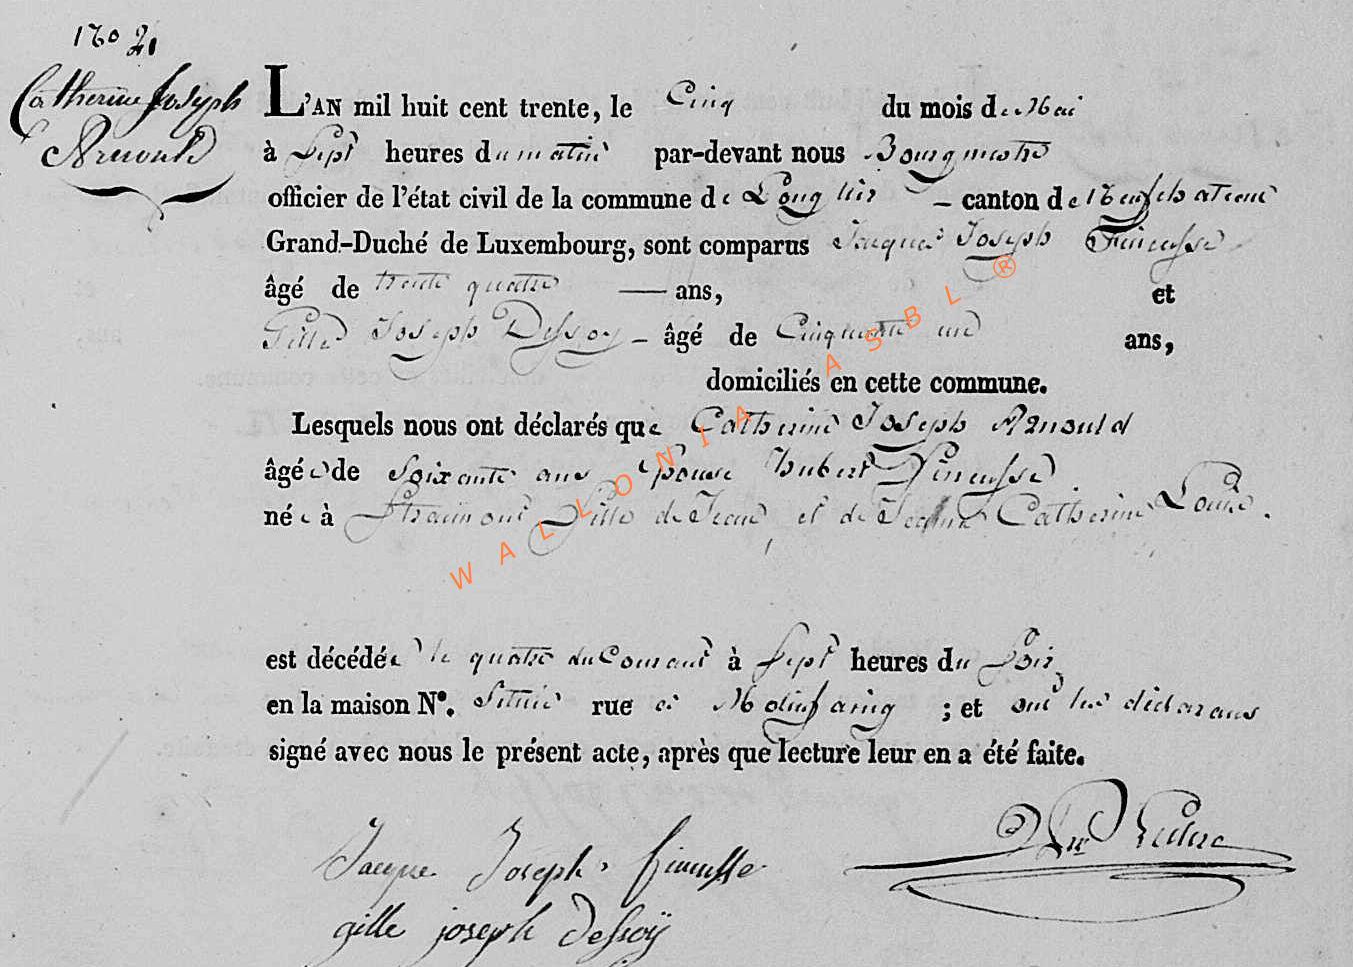 Catherine Joseph
Arnould
L'AN mil huit cent trente, le Cinq du mois de Mai
à Sept heures du matin par-devant nous Bourgmestre
officier de l'état civil de la commune de Longlier – canton de Neufchateau
Grand-Duché de Luxembourg, sont comparus Jacque Joseph Fineusse
âgé de trente quatre — ans, et
Gille Joseph Dessoy – âgé de Cinquante un ans,
domiciliés en cette commune.
Lesquels nous ont déclarés que Catherine Joseph Arnould
âgée de soixante ans épouse hubert Fineusse
née à Straimont fille de Jean et de Jeanne Catherine Louis.
est décédée le quatre du Courant à Sept heures du Soir
en la maison N°. Située rue à Molinfaing ; et ont les déclarans
signé avec nous le présent acte, après que lecture leur en a été faite.
Jacque Joseph fineusse
gille joseph dessoÿ
WALLONIA ASBL ®